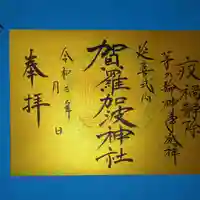 疫禍静除
茅の輪神事発祥
延喜式内
賀羅加波神社
令和二年 月 日
奉拝